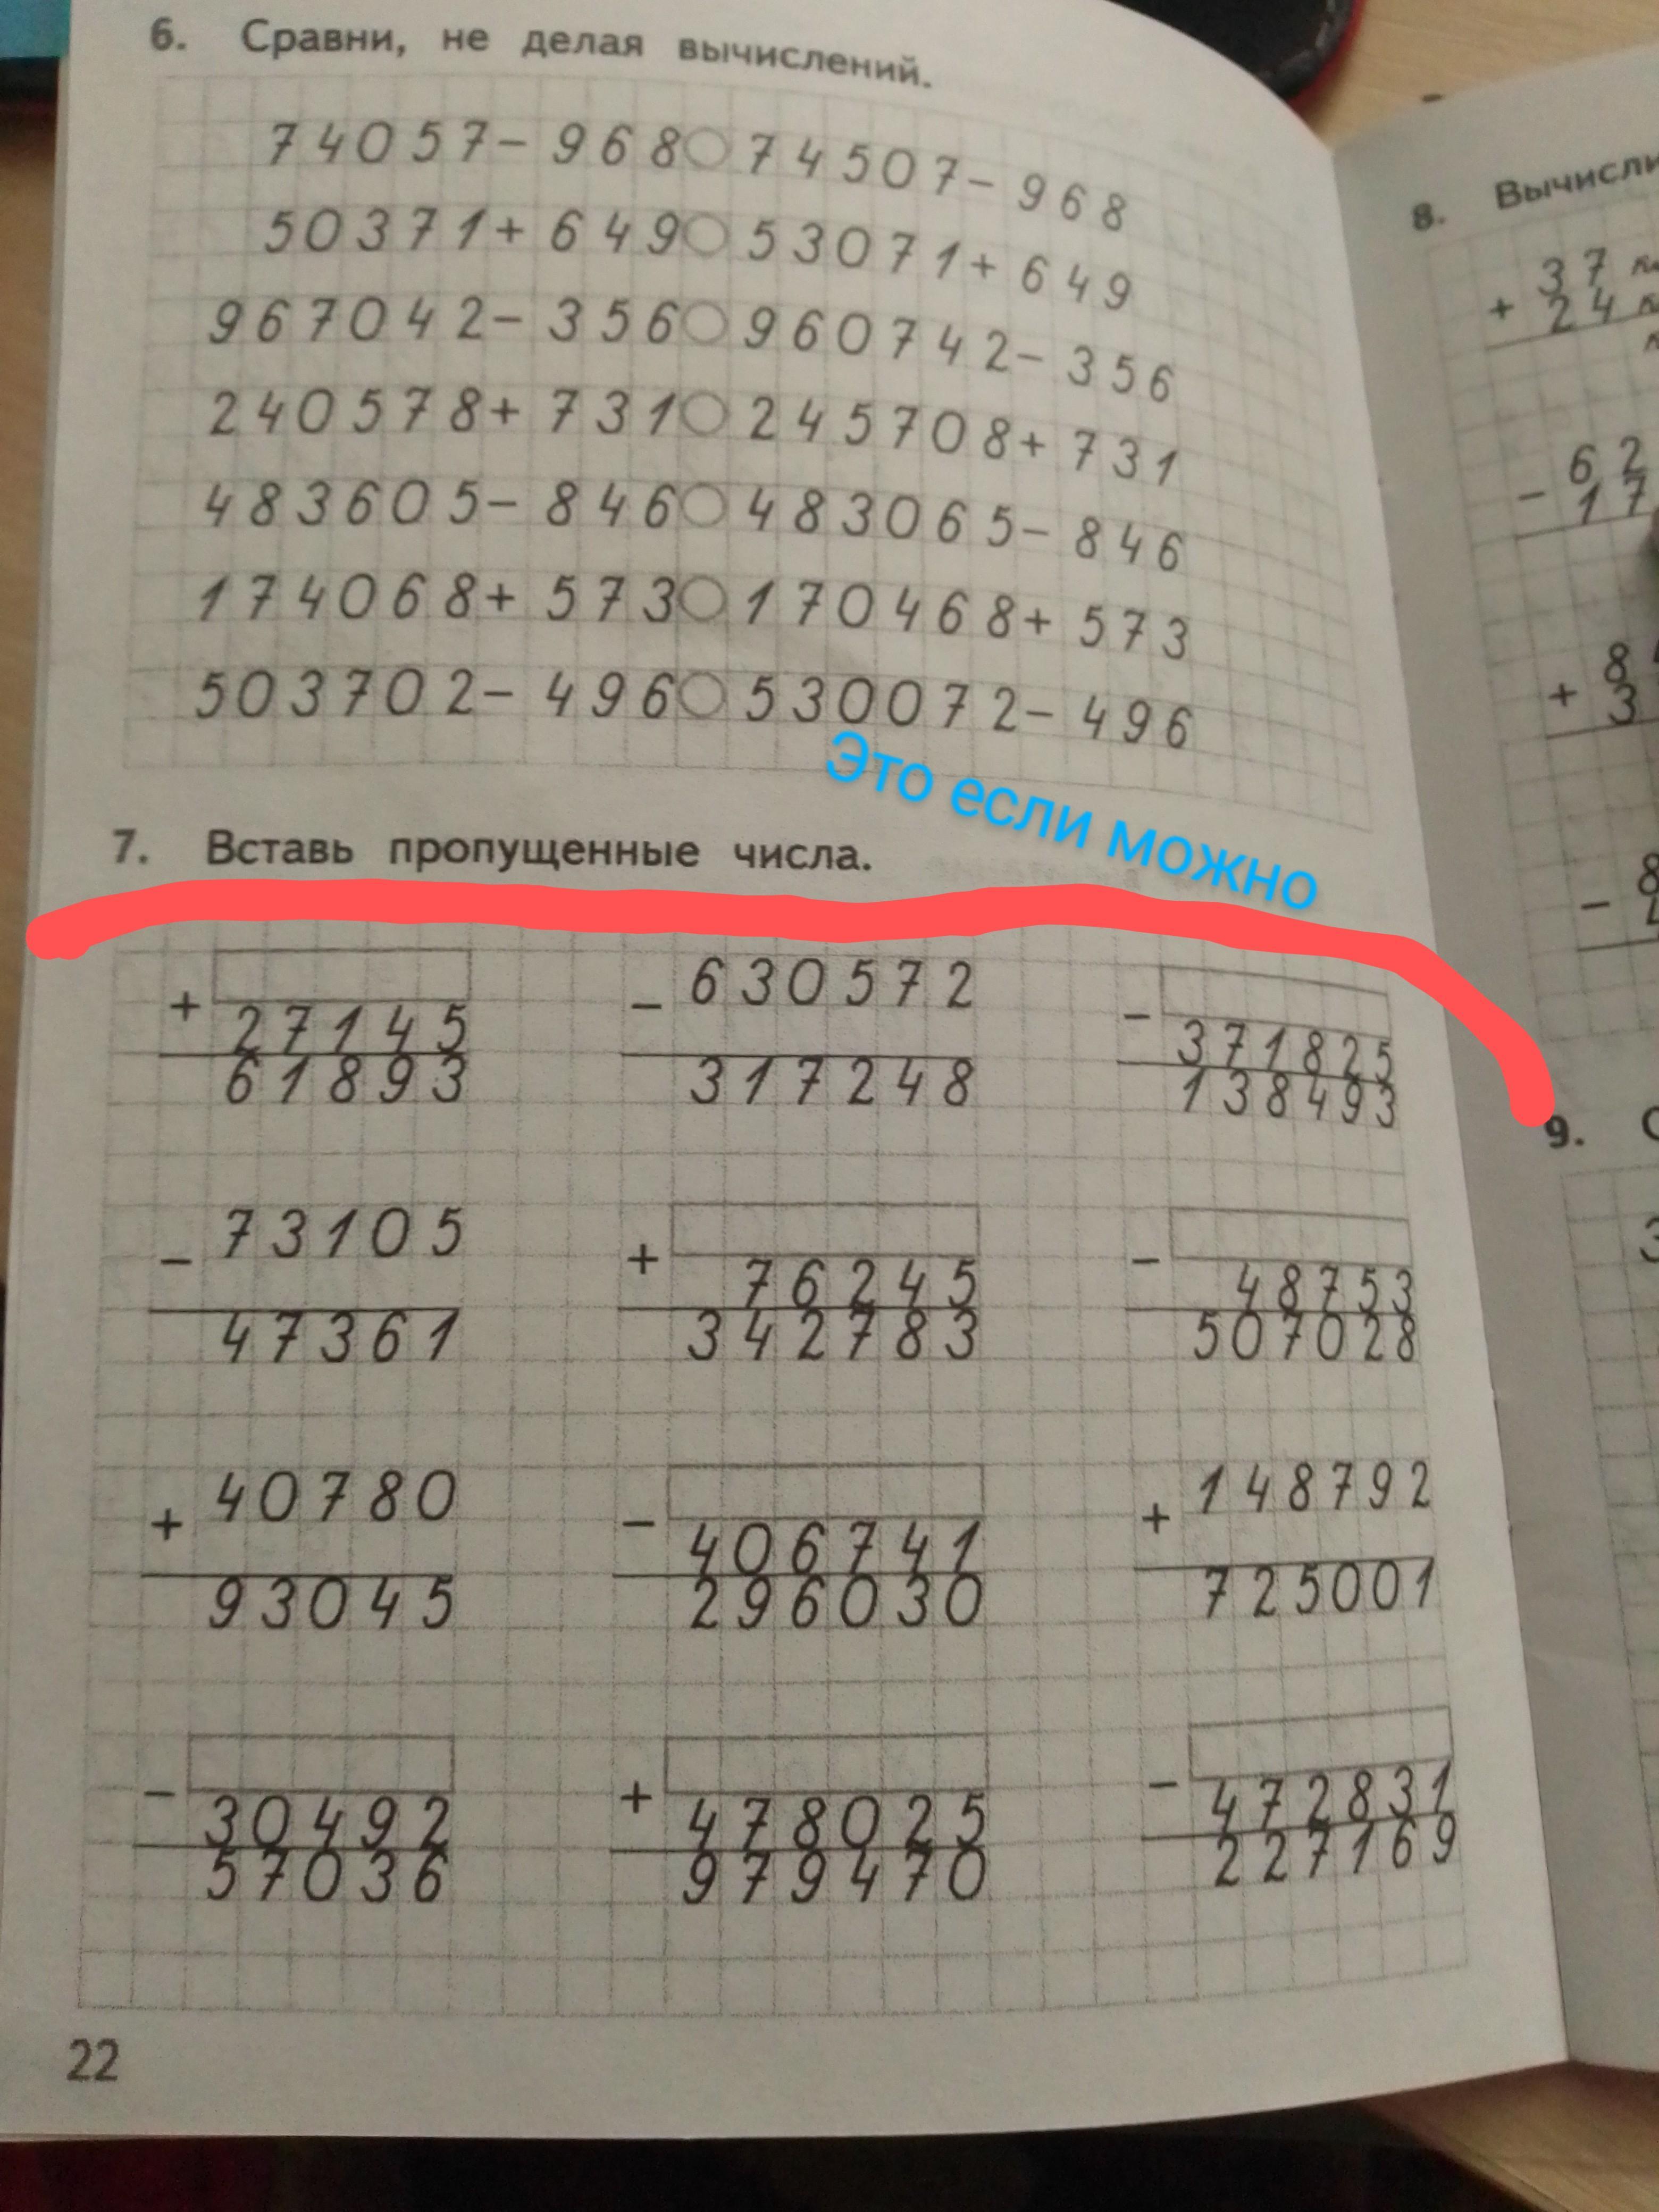 6. Сравни, не делая вычислений.
74057 − 968 ○ 74507 − 968
50371 + 649 ○ 53071 + 649
967042 − 356 ○ 960742 − 356
240578 + 731 ○ 245708 + 731
483605 − 846 ○ 483065 − 846
174068 + 573 ○ 170468 + 573
503702 − 496 ○ 530072 − 496
Это если можно
7. Вставь пропущенные числа.
+
27145
61893
− 630572
317248
−
371825
138493
− 73105
47361
+
76245
342783
−
48753
507028
+ 40780
93045
−
406741
296030
+ 148792
725001
−
30492
57036
+
478025
979470
−
472831
227169
22
8.
+ 37
24
− 62
17
+ 8
3
− 8
9.